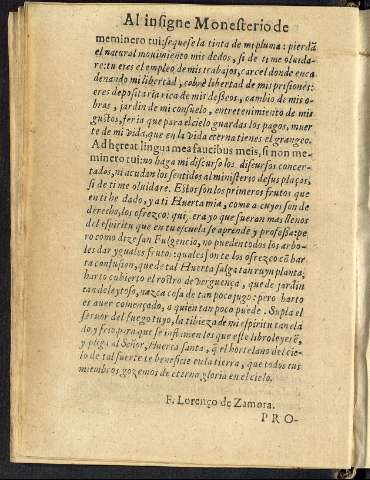 Al insigne Monesterio de
meminero tui: sequese la tinta de mi pluma: pierdã
el natural movimiento mis dedos, si de ti me oluida-
re: tu eres el empleo de mis trabajos, carcel donde enca
denando mi libertad, cobrè libertad de mis prisiones:
eres depositaria rica de mis desseos, cambio de mis o-
bras, jardin de mi consuelo, entretenimiento de mis
gustos, feria que para el cielo guardas los pagos, muer
te de mi vida, que en la vida eterna tienes el grangeo.
Ad hęreat lingua mea faucibus meis, si non me-
minero tui: no haga mi discurso los discursos concer-
tados, ni acudan los sentidos al ministerio de sus plaços,
si de ti me oluidare. Estos son los primeros frutos que
en ti he dado, y a ti Huerta mia, como a cuyos son de
derecho, los ofrezco: quisiera yo que fueran mas llenos
del espiritu que en tu escuela se aprende y professa: pe
ro como dize san Fulgencio, no pueden todos los arbo-
les dar yguales fruto: quales son te los ofrezco cõ har-
ta confusion, que de tal Huerta salga tan ruyn planta;
harto cubierto el rostro de verguença, que de jardin
tan deleytoso, nazca cosa de tan poco jugo: pero harto
es auer començado, a quien tan poco puede. Supla el
feruor del fuego tuyo, la tibieza de mi espiritu tan ela
do y frio, para que se inflamen los que este libro leyerẽ,
y plega al Señor, Huerta santa, q̃ el hortelano del cie-
lo de tal suerte te beneficie en la tierra, que todos tus
miembros gozemos de eterna gloria en el cielo.
F. Lorenço de Zamora.
PRO-